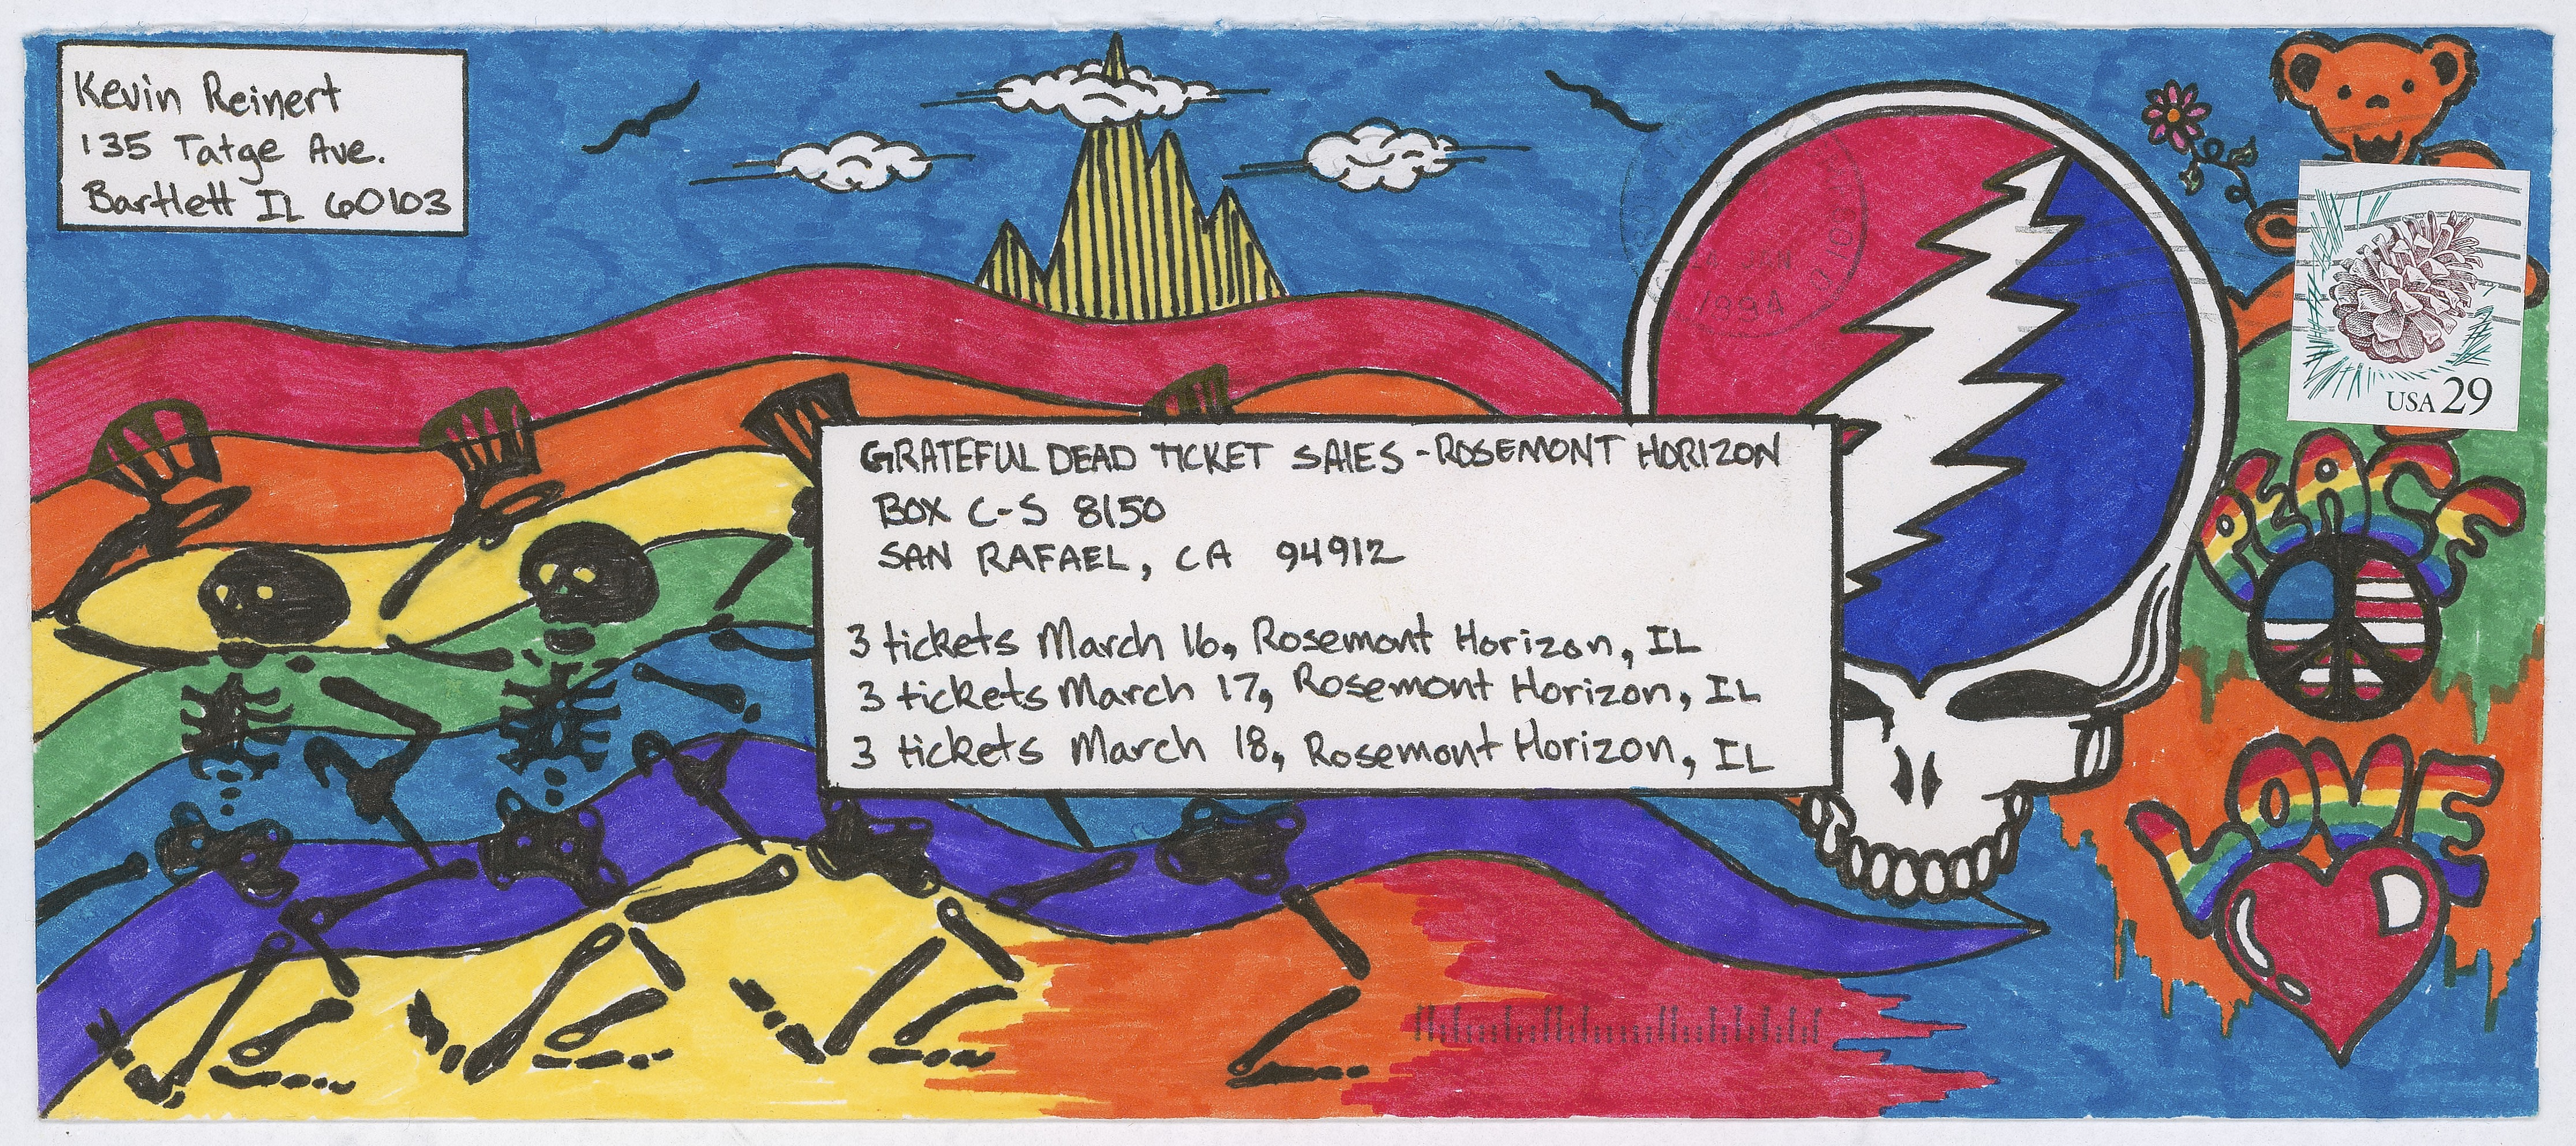 Kevin Reinert
135 Tatge Ave.
Bartlett IL 60103
GRATEFUL DEAD TICKET SALES - ROSEMONT HORIZON
BOX C-S 8150
SAN RAFAEL, CA 94912
3 tickets March 16, Rosemont Horizon, IL
3 tickets March 17, Rosemont Horizon, IL
3 tickets March 18, Rosemont Horizon, IL
1994
USA 29
PEACE
LOVE